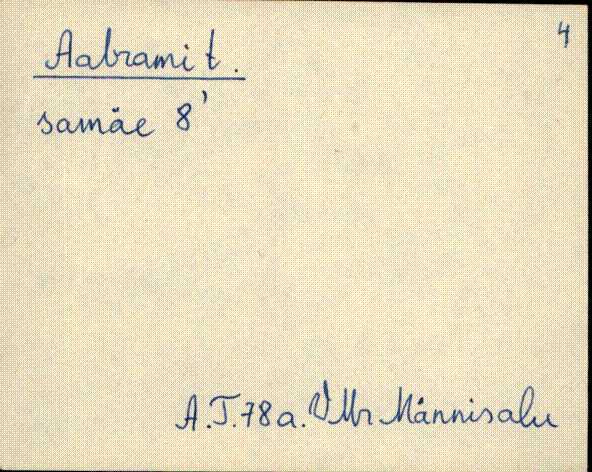 4
Aabrami t.
samäe 8'
A.T. 78 a. VMr Männisalu